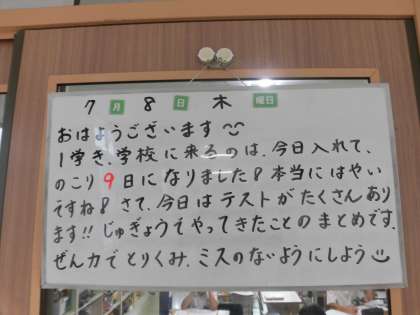 7月8日木曜日
おはようございます
1学き、学校に来るのは、今日入れて、
のこり9日になりました。本当にはやい
ですね。さて、今日はテストがたくさんあり
ます!!じゅぎょうでやってきたことのまとめです。
ぜん力でとりくみ、ミスのないようにしよう